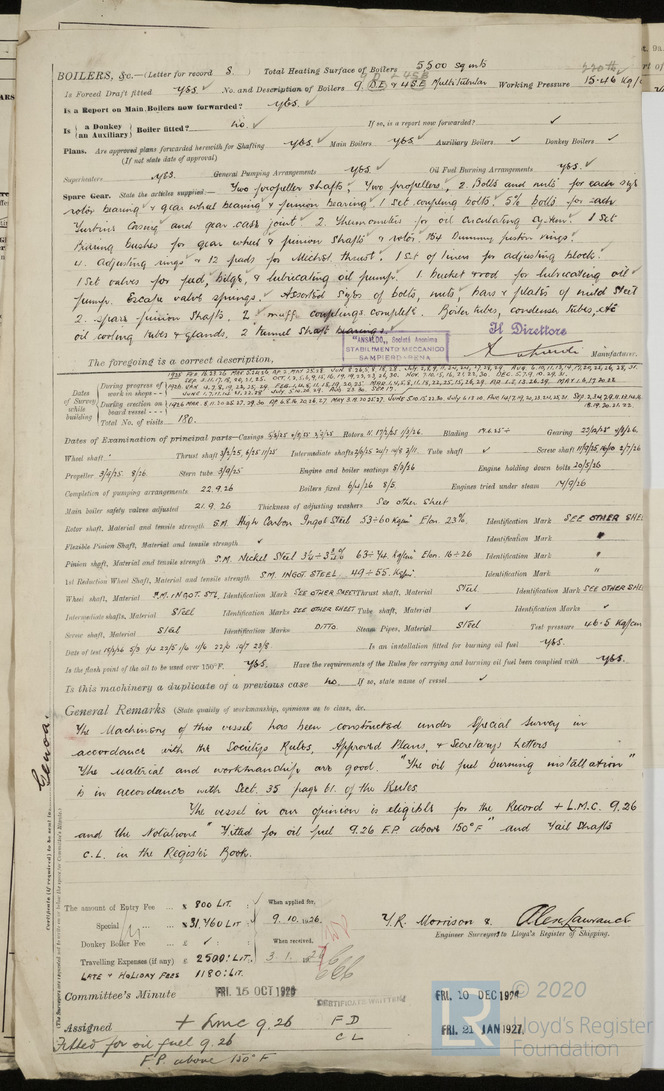 BOILERS, &c.—(Letter for record S ) Total Heating Surface of Boilers 5500 sq mts
Is Forced Draft fitted yes. No. and Description of Boilers 9 D.E & 4 S.E Multitubular Working Pressure 15.46 Kg/c
Is a Report on Main Boilers now forwarded? yes.
Is {a Donkey / an Auxiliary} Boiler fitted? no. If so, is a report now forwarded?
Plans. Are approved plans forwarded herewith for Shafting yes. Main Boilers yes. Auxiliary Boilers Donkey Boilers
(If not state date of approval)
Superheaters yes. General Pumping Arrangements yes. Oil Fuel Burning Arrangements yes.
Spare Gear. State the articles supplied:— Two propeller shafts, Two propellers, 2 Bolts and nuts for each
rotor bearing & gear wheel bearing & pinion bearing 1 set coupling bolts. 5% bolts for each
Turbine Casing and gear case joint 2. Thermometers for oil circulating system. 1 Set
Bushes for gear wheel & pinion shafts & rotor. 164 Dummy piston rings.
4. adjusting rings & 12 pads for Michel thrust. 1 Set of liners for adjusting block.
1 Set valves for fuel, bilge, & lubricating oil pump. 1 bucket & rod for lubricating oil
pump. Escape valve springs. Assorted sizes of bolts, nuts, bars & plates of mild steel
2. spare pinion shafts, 2 muff couplings complete. Boiler tubes, condenser tubes, etc
oil cooling tubes & glands. 2 Tunnel shaft bearings.
Il Direttore
"ANSALDO" Società Anonima
STABILIMENTO MECCANICO
SAMPIERDARENA
The foregoing is a correct description, Manufacturer.
Dates of Survey while building
During progress of work on shops
During erection on board vessel
Total No. of visits 180.
Dates of Examination of principal parts—Casings Rotors Blading Gearing
Wheel shaft Thrust shaft Intermediate shafts Tube shaft Screw shaft
Propeller 3/9/25 8/26 Stern tube 3/9/25 Engine and boiler seatings 5/2/26 Engine holding down bolts 20/5/26
Completion of pumping arrangements 22.9.26 Boilers fixed Engines tried under steam 14/9/26
Main boiler safety valves adjusted 21.9.26 Thickness of adjusting washers See other Sheet
Rotor shaft, Material and tensile strength S.M. High Carbon Ingot Steel 53÷60 Kg/mm² Elon. 23% Identification Mark SEE OTHER SHE
Flexible Pinion Shaft, Material and tensile strength Identification Mark "
Pinion shaft, Material and tensile strength S.M. Nickel Steel 63÷74 Kg/mm² Elon. 16÷26 Identification Mark "
1st Reduction Wheel Shaft, Material and tensile strength S.M. INGOT. STEEL. 49÷55. Kg/mm² Identification Mark "
Wheel shaft, Material S.M. INGOT. STL. Identification Mark SEE OTHER SHEET Thrust shaft, Material Steel Identification Mark SEE OTHER SHE
Intermediate shafts, Material STEEL Identification Marks SEE OTHER SHEET Tube shaft, Material Identification Marks
Screw shaft, Material STEEL Identification Marks DITTO. Steam Pipes, Material STEEL Test pressure 46.5 Kg/cm
Date of test Is an installation fitted for burning oil fuel yes.
Is the flash point of the oil to be used over 150°F. yes. Have the requirements of the Rules for carrying and burning oil fuel been complied with yes.
Is this machinery a duplicate of a previous case no. If so, state name of vessel
General Remarks (State quality of workmanship, opinions as to class, &c.
The Machinery of this vessel has been constructed under Special Survey in
accordance with the Societys Rules, Approved Plans, & Secretarys Letters
The Material and workmanship are good "The oil fuel burning installation"
is in accordance with Sect. 35 page 61. of the Rules
The vessel in our opinion is eligible for the Record + L.M.C. 9.26
and the Notations "Fitted for oil fuel 9.26 F.P. above 150°F" and Tail Shafts
C.L. in the Register Book.
Genoa.
Certificate (if required) to be sent to
The amount of Entry Fee ... £ 800 LIT. When applied for,
Special ... £ 31,460 LIT 9. 10. 1926.
Donkey Boiler Fee ... £ When received,
Travelling Expenses (if any) £ 2500: LIT. 3. 1. 1927
LATE & HOLIDAY FEES 1180: LIT.
Y.R. Morrison & Alex Lawrance
Engineer Surveyors to Lloyd's Register of Shipping.
Committee's Minute FRI. 15 OCT 1926 FRI. 10 DEC 1926
CERTIFICATE WRITTEN
Assigned + Lmc 9.26 F D FRI. 21 JAN 1927
Fitted for oil fuel 9.26 C L
F.P. above 150°F
LR
© 2020
Lloyd's Register
Foundation